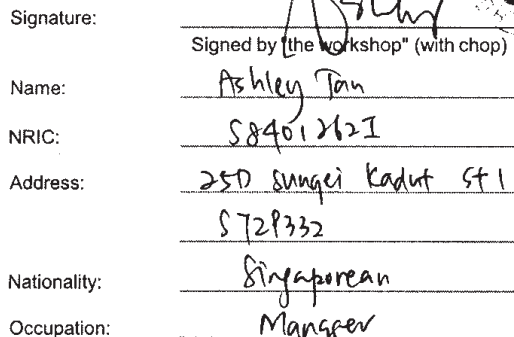 Signature:
Signed by "the workshop" (with chop)
Name: Ashley Tan
NRIC: S8401262I
Address: 25D Sungei Kadut St 1
S729332
Nationality: Singaporean
Occupation: Manager